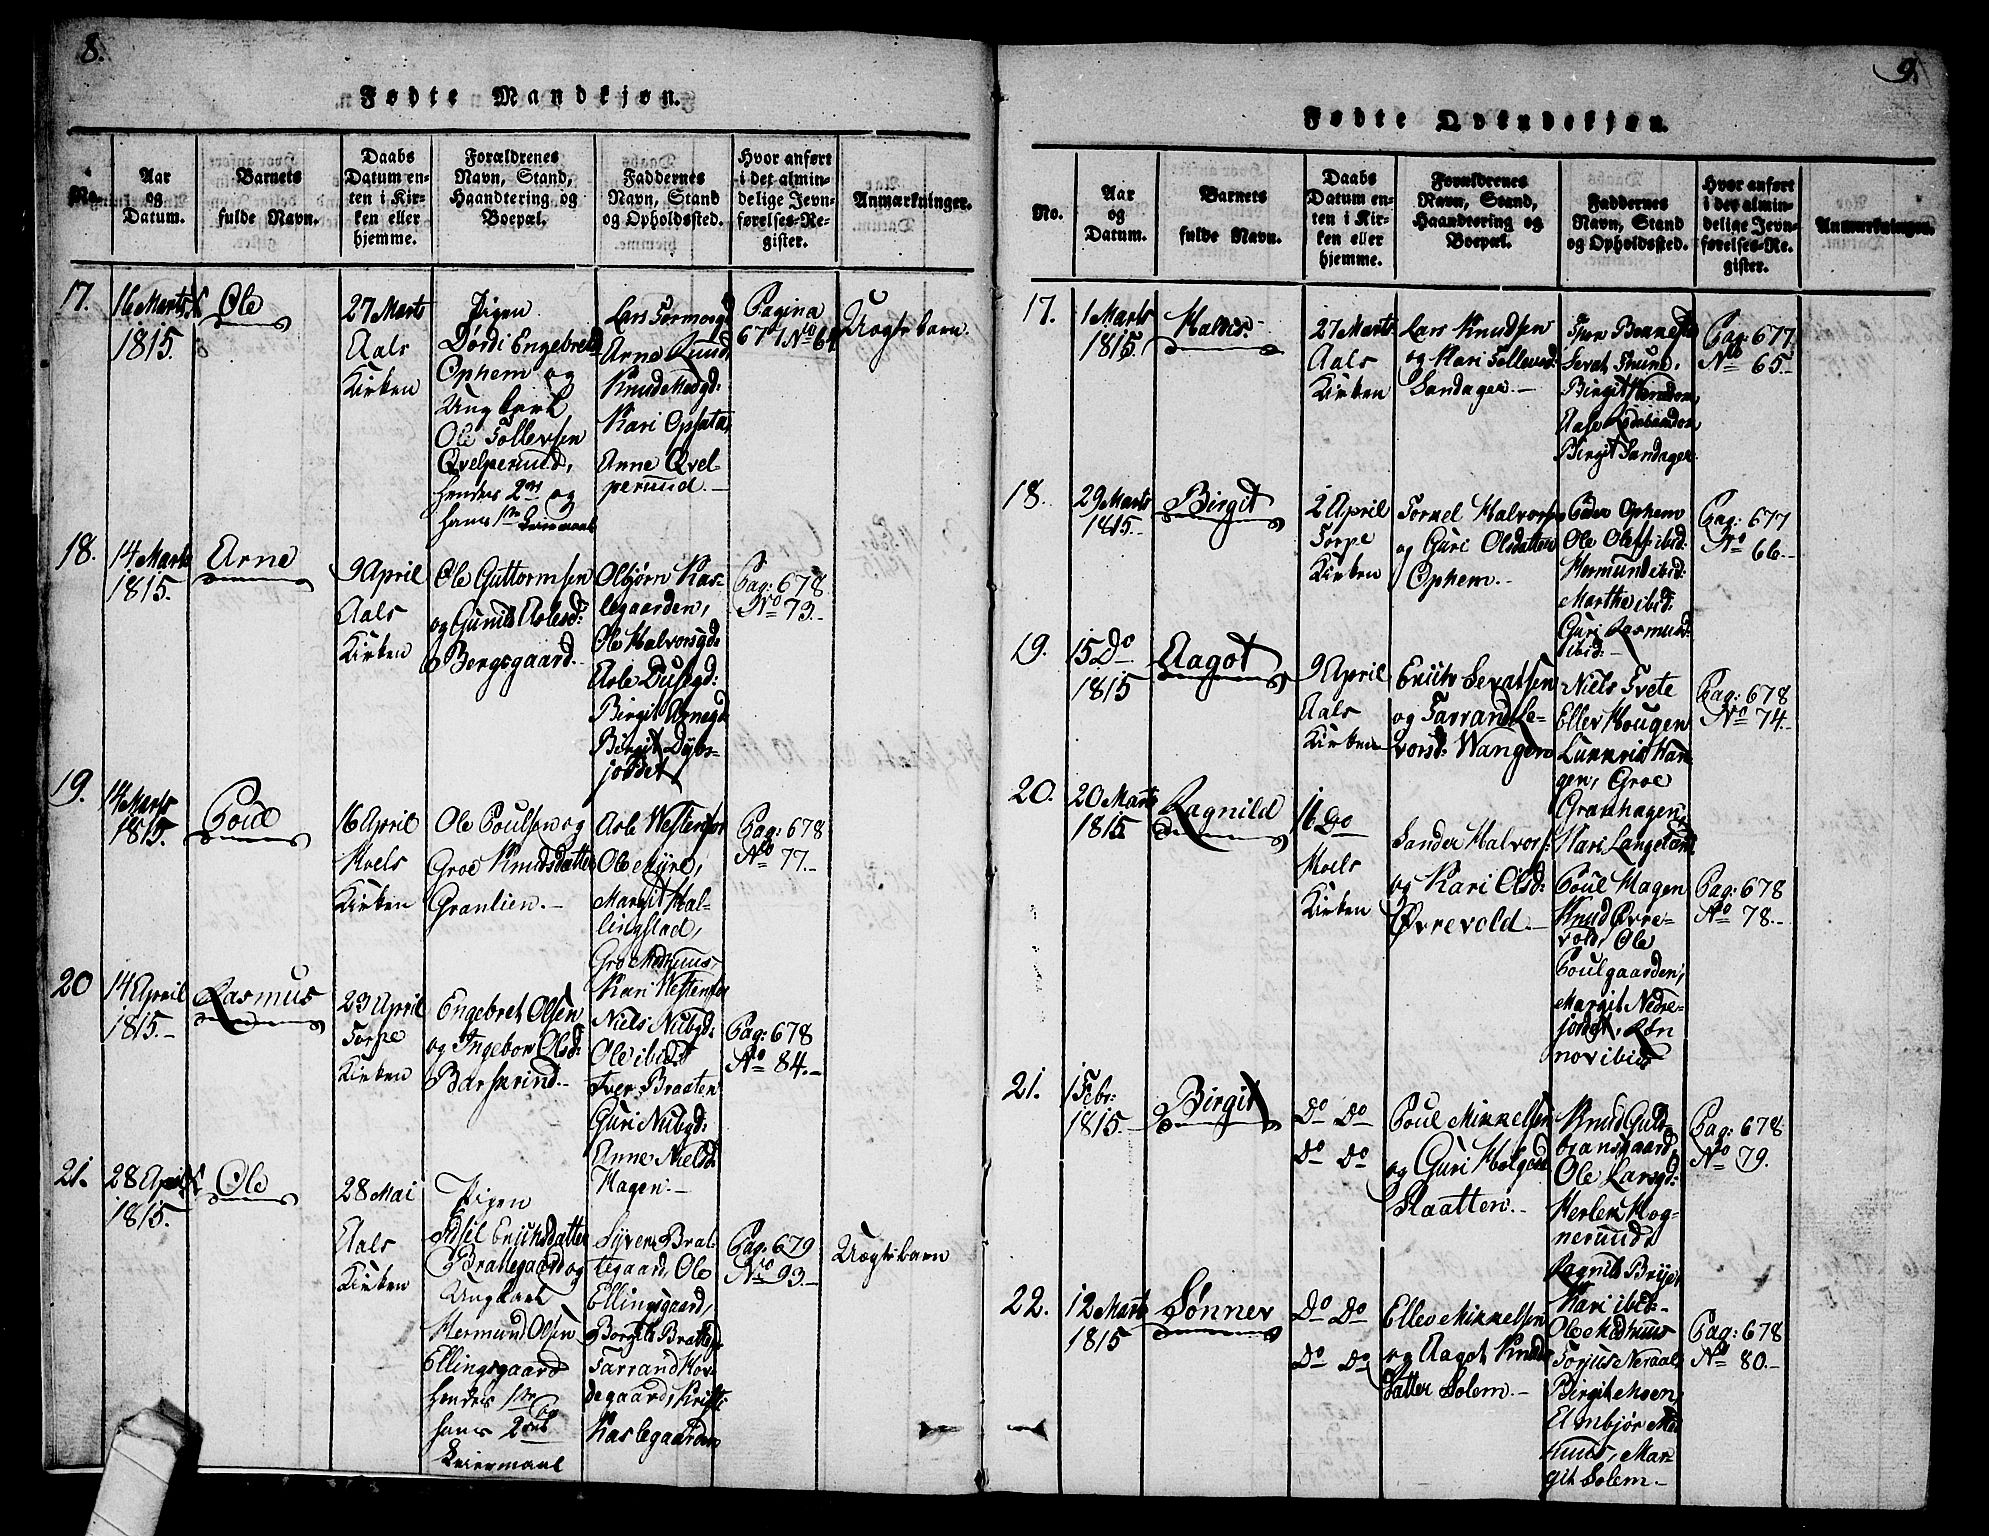 8.
Fødte Mandkjøn.
No.
Aar
og
Datum.
Barnets
fulde Navn.
Daabs
Datum en-
ten i Kir-
ken eller
hjemme.
Forældrenes
Navn, Stand,
Haandtering og
Boepæl.
Faddernes
Navn, Stand
og Opholdssted.
Hvor anført
i det almin-
delige Jevn-
førelses-Re-
gister.
Anmærkninger.
17.
16 Marts
1815.
Ole
27 Marts
Aals
Kirken
Pigen
Dørdi Engebretsd
Ophem og
Ungkarl
Ole Tollevsen
Qvelperuud,
hendes 2det og
hans 1ste Leiermaal
Lars Tormosgd
Arne Ruud,
Knud Medgd:
Kari Opsata,
Anne Qvel
peruud.
Pagina
677 No 64
Uægte barn.
18.
14 Marts
1815.
Arne
9 April
Aals
Kirken
Ole Guttormsen
og Gunild Aslesd:
Bergsgaard.
Olbjørn Kas-
legaarden,
Ole Halvorsgd:
Asle Dusgd:
Birgit Arnegd
Birgit Dybs-
jordet
Pag: 678
No 73.
19.
14 Marts
1815.
Poul
16 April
Hoels
Kirken
Ole Poulsen og
Groe Knudsdatter
Granlien.
Asle Westenfor
Ole Myre,
Margit Hal-
lingstad,
Gro Medhuus,
Kari Westenfor
Pag: 678
No 77.
20
14 April
1815.
Rasmus
23 April
Torpe
Kirken
Engebret Olsen
og Ingebor Olsd:
Barskrind.
Niels Nubgd:
Ole ibid
Iver Braaten
Guri Nubgd:
Anne Nielsd
Hagen.
Pag: 678
No 84.
21.
28 April
1815.
Ole
28 Mai
Aals
Kirken
Pigen
Adsil Erichsdatter
Brattegaard og
Ungkarl
Hermund Olsen
Ellingsgaard
hendes 1ste og
hans 2det
Leiermaal
Syver Brat-
tegaard, Ole
Ellingsgaard,
Borgild Brattegd
Tarrand Hov-
degaard, Kristi
Kaslegaarden
Pag: 679
No 93.
Uægte barn
9.
Fødte Qvindekjøn.
No.
Aar
og
Datum.
Barnets
fulde Navn.
Daabs
Datum en-
ten i Kir-
ken eller
hjemme.
Forældrenes
Navn, Stand,
Haandtering og
Boepæl.
Faddernes
Navn, Stand
og Opholdssted.
Hvor anført
i det almin-
delige Jevn-
førelses-Re-
gister.
Anmærkninger.
17.
1 Marts
1815.
Haldis.
27 Marts
Aals
Kirken
Lars Knudsen
og Kari Tollevsd:
Sandager.
Sevat Thune,
Birgit
Aase
Birgit Sandager
Pag: 677
No 65.
18.
29 Marts
1815.
Birgit
2 April
Torpe
Kirken
Torkel Halvorsen
og Guri Olsdatter
Ophem.
Peder Ophem
Ole Olefs ibid:
Hermund ibid:
Marthe ibid:
Guri Rasmusd:
ibid:
Pag: 677
No 66.
19.
15 Do
1815
Aagot
9 April
Aals
Kirken
Erich Sevatsen
og Tarrand Le-
vorsd: Wangen
Niels Tvete
Ellev Hougen
Lukkris Hau
gen, Groe
Granhagen,
Kari Langeland
Pag: 678
No 74.
20.
20 Marts
1815
Ragnild
16 Do
Hoels
Kirken
Sander Halvors:
og Kari Olsd:
Øvrevold.
Poul Hagen
Knud Øvre-
vold, Ole
Poulgaarden,
Margit Nedre-
jordet, Røn
nov ibid
Pag: 678
No 78.
21.
1 Febr:
1815.
Birgit
Do Do
Do Do
Poul Mikkelsen
og Guri Holgesd
Slaatten.
Knud Guld-
brandsgaard,
Ole Larsgd:
Herlek Hog-
neruud,
Ragnild Brye,
Kari ibid.
Pag: 678
No 79.
22.
12 Marts
1815
Sønnev
Do Do
Do Do
Ellev Mikkelsen
og Aagot Knuds
datter Solem.
Ole Medhuus
Torjus Neraal
Birgit Moen,
Embjør Med
huus, Mar-
git Solem.
Pag: 678
No 80.